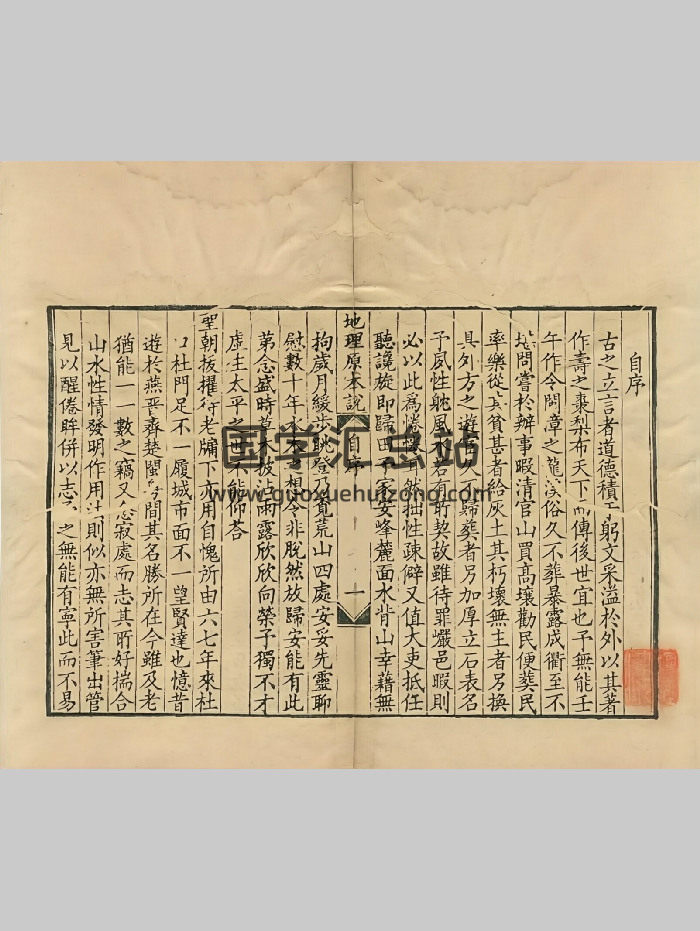 自序
古之立言者道德積于躬文采溢於外以其著
作壽之棗梨布天下而傳後世宜也予無能壬
午作令閩章之龍溪俗久不葬暴露成衢至不
問嘗於辦事暇清官山買高壤勸民便葬民
率樂從其貧甚者給灰土其朽壞無主者另換
具外方之遊者久不歸葬者另加厚立石表名
予夙性躭風水若有所契故雖待罪嚴邑暇則
必以此為惓惓有然拙性疎僻又值大吏抵任
聽讒旋即歸田予家安峰麓面水背山幸藉無
地理原本說 自序 一
拘歲月緩步眺登乃覓荒山四處安妥先靈聊
慰數十年水木之想令非脫然放歸安能有此
第念盛時草木披沾雨露欣欣向榮予獨不才
虛生太平之世不能仰荅
聖朝拔擢得老牖下亦用自愧所由六七年來杜
杜門足不一履城市面不一望賢達也憶昔
遊於燕晉齊楚閩間其名勝所在今雖及老
猶能一一數之竊又念寂處而志其所好揣合
山水性情發明作用法則似亦無所害筆出管
見以醒倦眸併以志之無能有寧此而不易
国学汇总站
www.guoxuehuizong.com